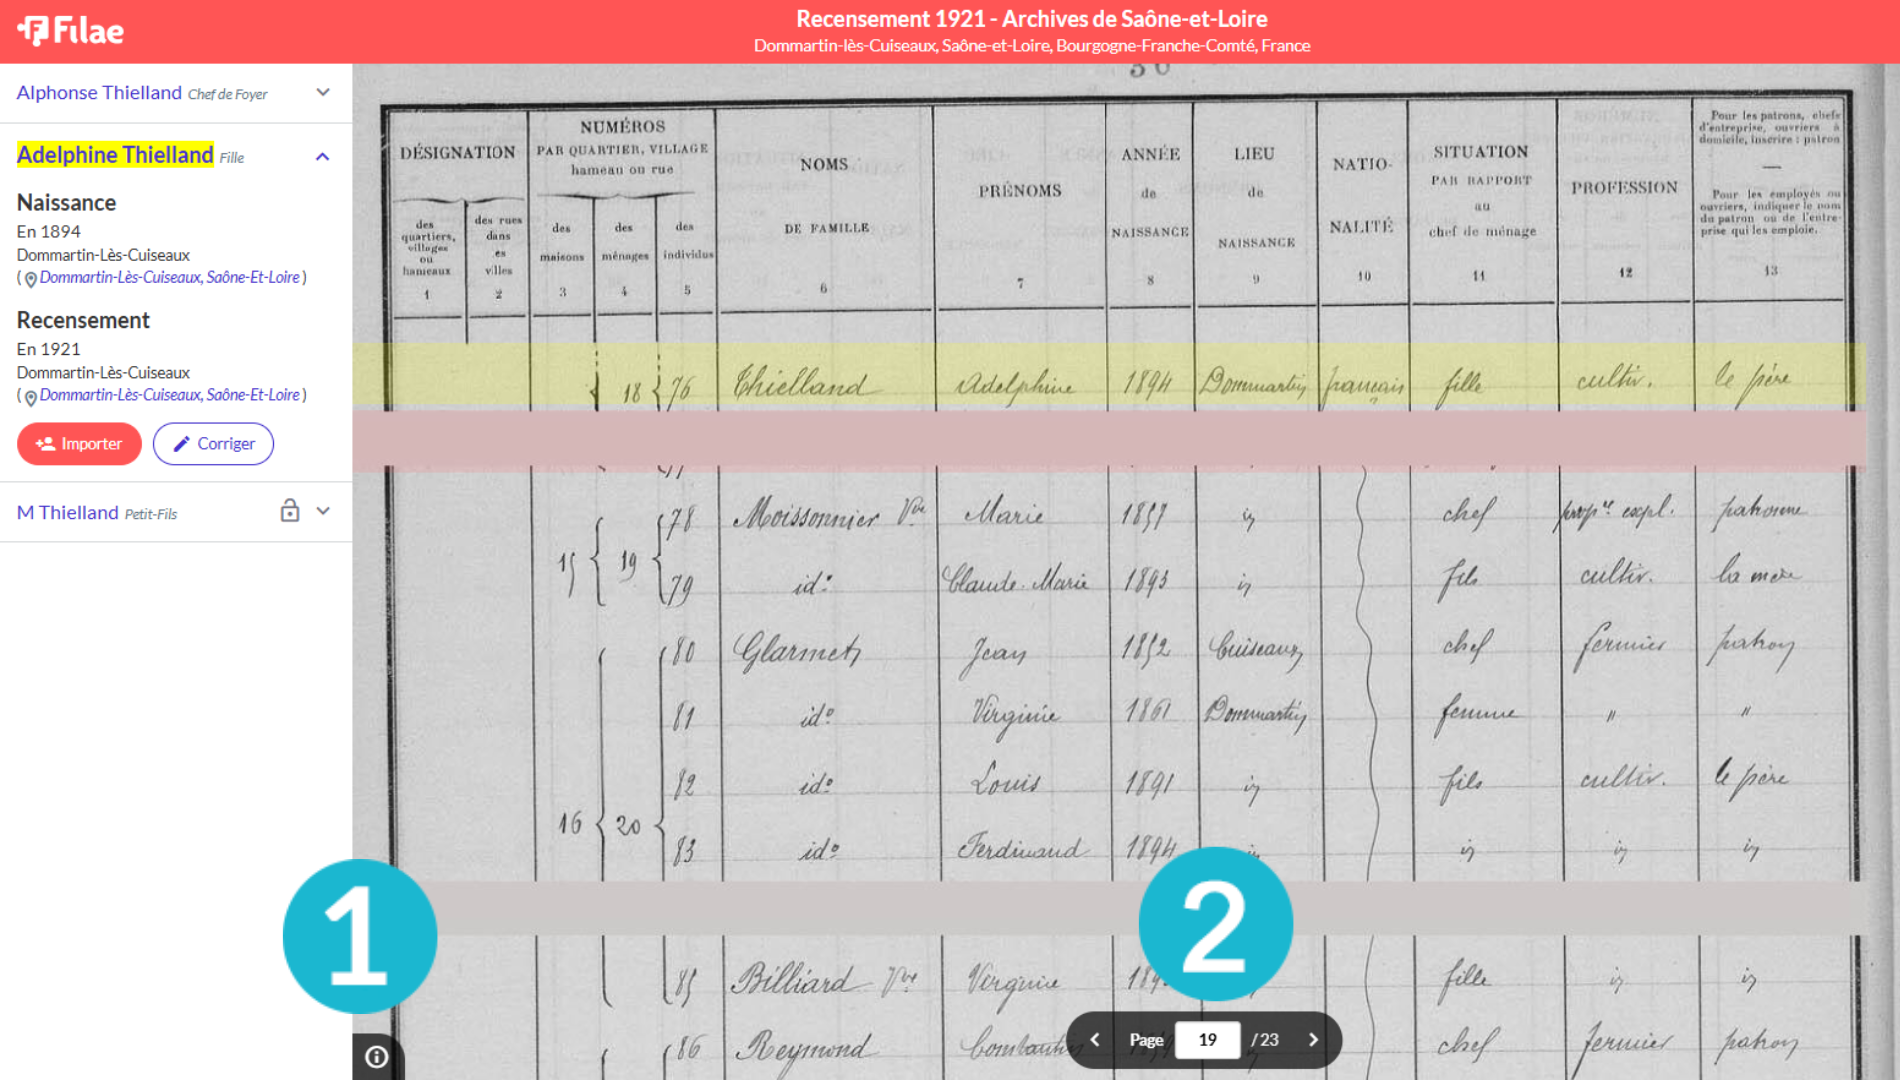 Filae
Recensement 1921 - Archives de Saône-et-Loire
Dommartin-lès-Cuiseaux, Saône-et-Loire, Bourgogne-Franche-Comté, France
Alphonse Thielland Chef de Foyer
Adelphine Thielland Fille
Naissance
En 1894
Dommartin-Lès-Cuiseaux
( Dommartin-Lès-Cuiseaux, Saône-Et-Loire )
Recensement
En 1921
Dommartin-Lès-Cuiseaux
( Dommartin-Lès-Cuiseaux, Saône-Et-Loire )
Importer Corriger
M Thielland Petit-Fils
1
DÉSIGNATION
des quartiers, villages ou hameaux 1
des rues dans es villes 2
NUMÉROS
PAR QUARTIER, VILLAGE
hameau ou rue
des maisons 3
des ménages 4
des individus 5
NOMS DE FAMILLE 6
PRÉNOMS 7
ANNÉE de NAISSANCE 8
LIEU de NAISSANCE 9
NATIO-NALITÉ 10
SITUATION PAR RAPPORT au chef de ménage 11
PROFESSION 12
Pour les patrons, chefs d'entreprise, ouvriers à domicile, inscrire : patron
—
Pour les employés ou ouvriers, indiquer le nom du patron ou de l'entreprise qui les emploie.
13
18 76 Thielland Adelphine 1894 Dommartin français fille cultiv. le père
77
78 Moissonnier Vve Marie 1857 id chef propre expl. patronne
15 19
79 id° Claude-Marie 1893 id fils cultiv. la mère
80 Glarmet Jean 1852 Cuiseaux chef fermier patron
81 id° Virginie 1861 Dommartin femme " "
82 id° Louis 1891 id fils cultiv. le père
16 20
83 id° Ferdinand 1894 id id id
2
85 Billiard Vve Virginie fille id id
86 Reymond chef fermier patron
Page 19 /23